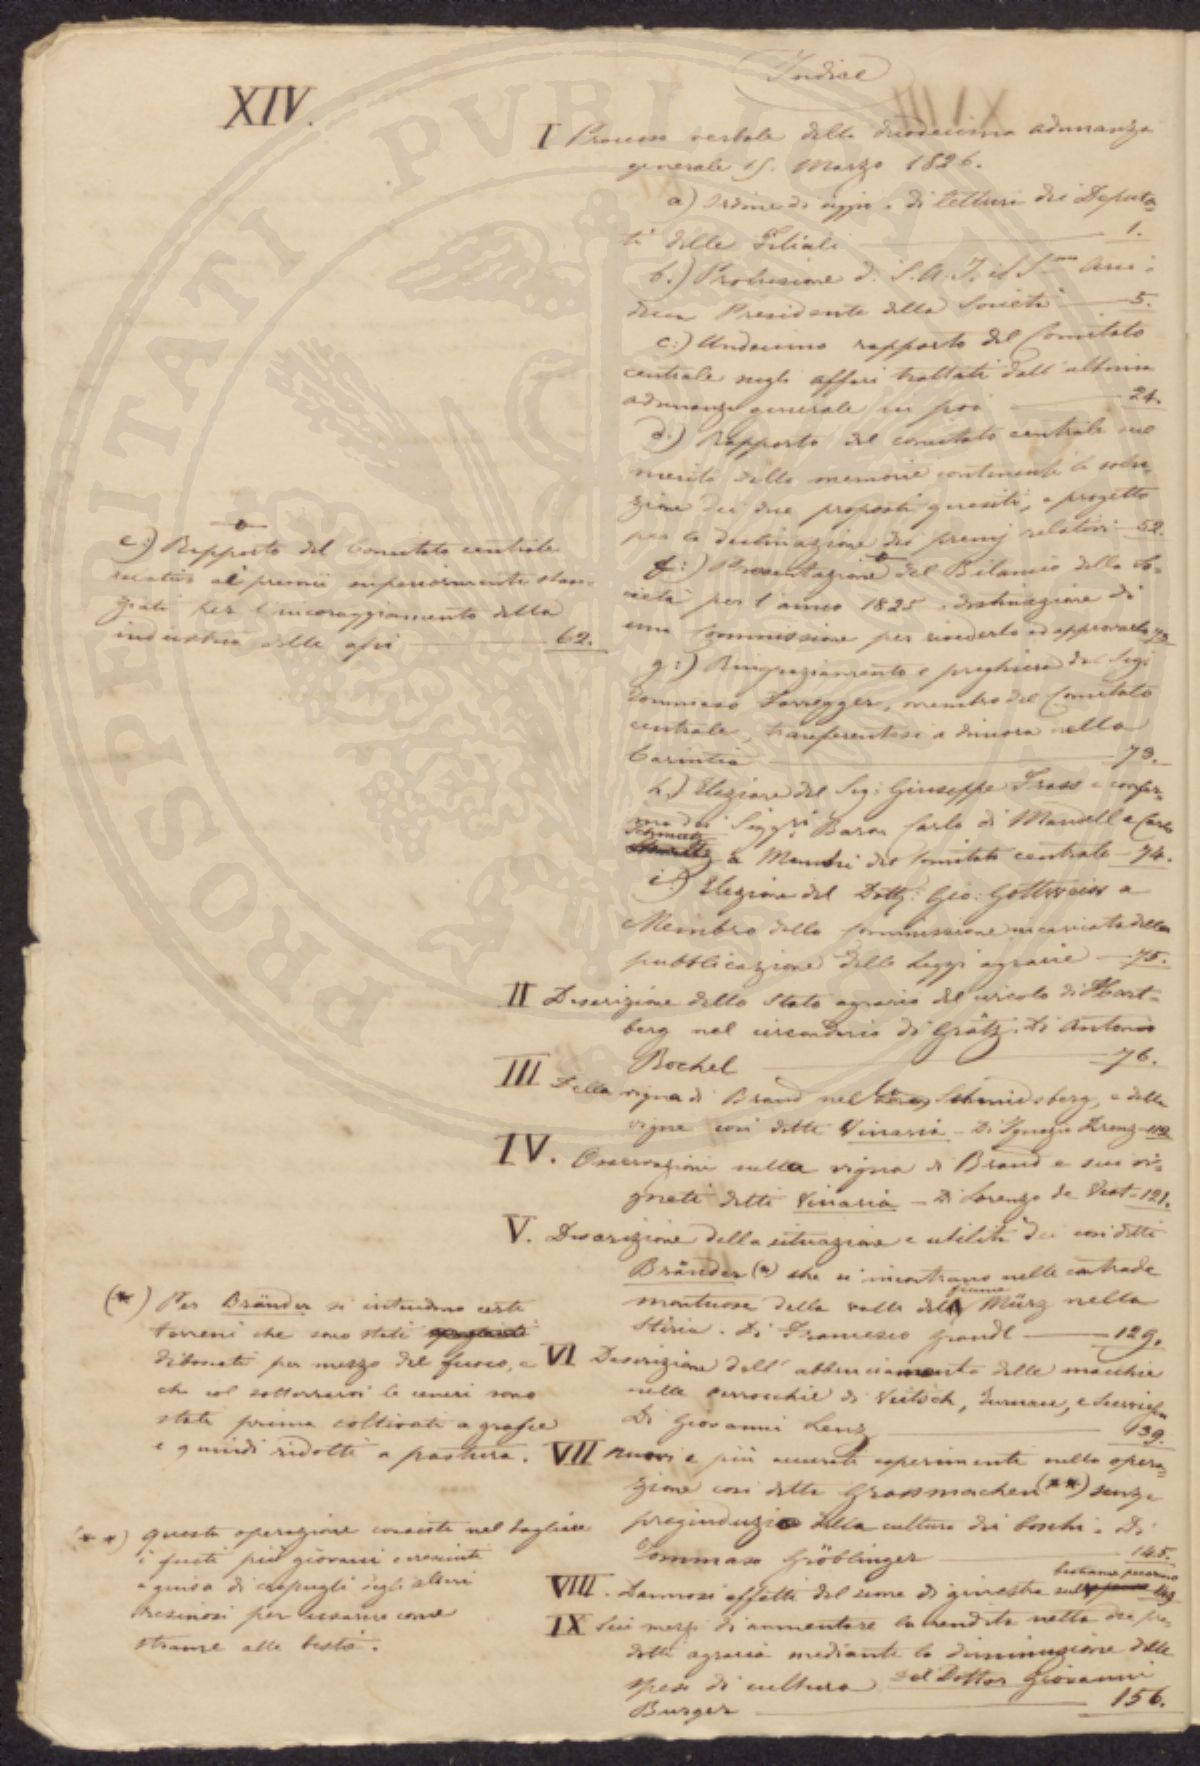 XIV.
Indice
I Processo verbale della duodecima adunanza
generale 15. Marzo 1826.
a) Ordine di di letture dei Deputa-
ti delle Filiali 1.
b.) Prolusione di S. A. I. il S.mo Arci-
duca Presidente della Società 5.
c:) Undecimo rapporto del Comitato
centrale negli affari trattati dall'ultima
adunanza generale in poi 24.
d.) Rapporto del comitato centrale sul
merito delle memorie continenti la solu-
zione dei due proposti quesiti, e progetto
per la destinazione dei premj relativi 52.
e:) Rapporto del Comitato centrale
relativo ai premii superiormente stan-
ziati per l'incoraggiamento della
industria delle api 62.
f:) Presentazione del Bilancio della So-
cietà per l'anno 1825. destinazione di
una Commissione per rivederlo ed approvarlo 73
g:) Ringraziamento e preghiera del Sigr
Tommaso Dorregger, membro del Comitato
centrale, trasferentesi a dimora nella
Carintia 73.
h.) Elezione del Sig: Giuseppe Frass e confer-
ma dei Siggri Baron Carlo di Mandell e Carlo
Schmutz a Membri del Comitato centrale 74.
i:) Elezione del Dottr: Gio: Gottweiss a
Membro della Commissione incaricata della
pubblicazione delle Leggi agrarie 75.
II Descrizione dello Stato agrario del circolo di Hart-
berg nel circondario di Grätz. Di Antonio
Rochel 76.
III Della vigna di Brand nel Schmidsberg, e delle
vigne così dette Vinaria - Di Ignazio Krenz 112
IV. Osservazioni sulla vigna di Brand e sui vi-
gneti detti Vinaria - Di Lorenzo de Vest - 121.
V. Descrizione della situazione e utilità dei così detti
Bränder (*) che si incontrano nelle contrade
montuose della valle del fiume Mürz nella
Stiria. Di Francesco Grandl 129.
(*) Per Bränder si intendono certi
terreni che sono stati
dibonati per mezzo del fuoco, e
che col sotterrarvi le ceneri sono
stati prima coltivati a grasse
e quindi ridotti a pastura.
VI Descrizione dell'abbruciamento delle macchie
nelle parrocchie di Veitsch, Turnau, e
Di Giovanni Lenz 139.
VII Nuovi e più accurati esperimenti nella opera-
zione così detta Grassmachen (**) senza
pregiudizio della cultura dei boschi. Di
Tommaso Gröblinger 145.
(**) Questa operazione consiste nel tagliare
i fusti più giovani cresciuti
a guisa di cespugli degli alberi
resinosi per usarne come
strame alle bestie.
VIII. Dannosi effetti del seme di ginestra sul bestiame pecorino 149
IX Sui mezzi di aumentare la rendita netta dei pro-
dotti agrarii mediante la diminuzione delle
spese di cultura Del Dottor Giovanni
Burger 156.
PROSPERITATI PUBLICAE